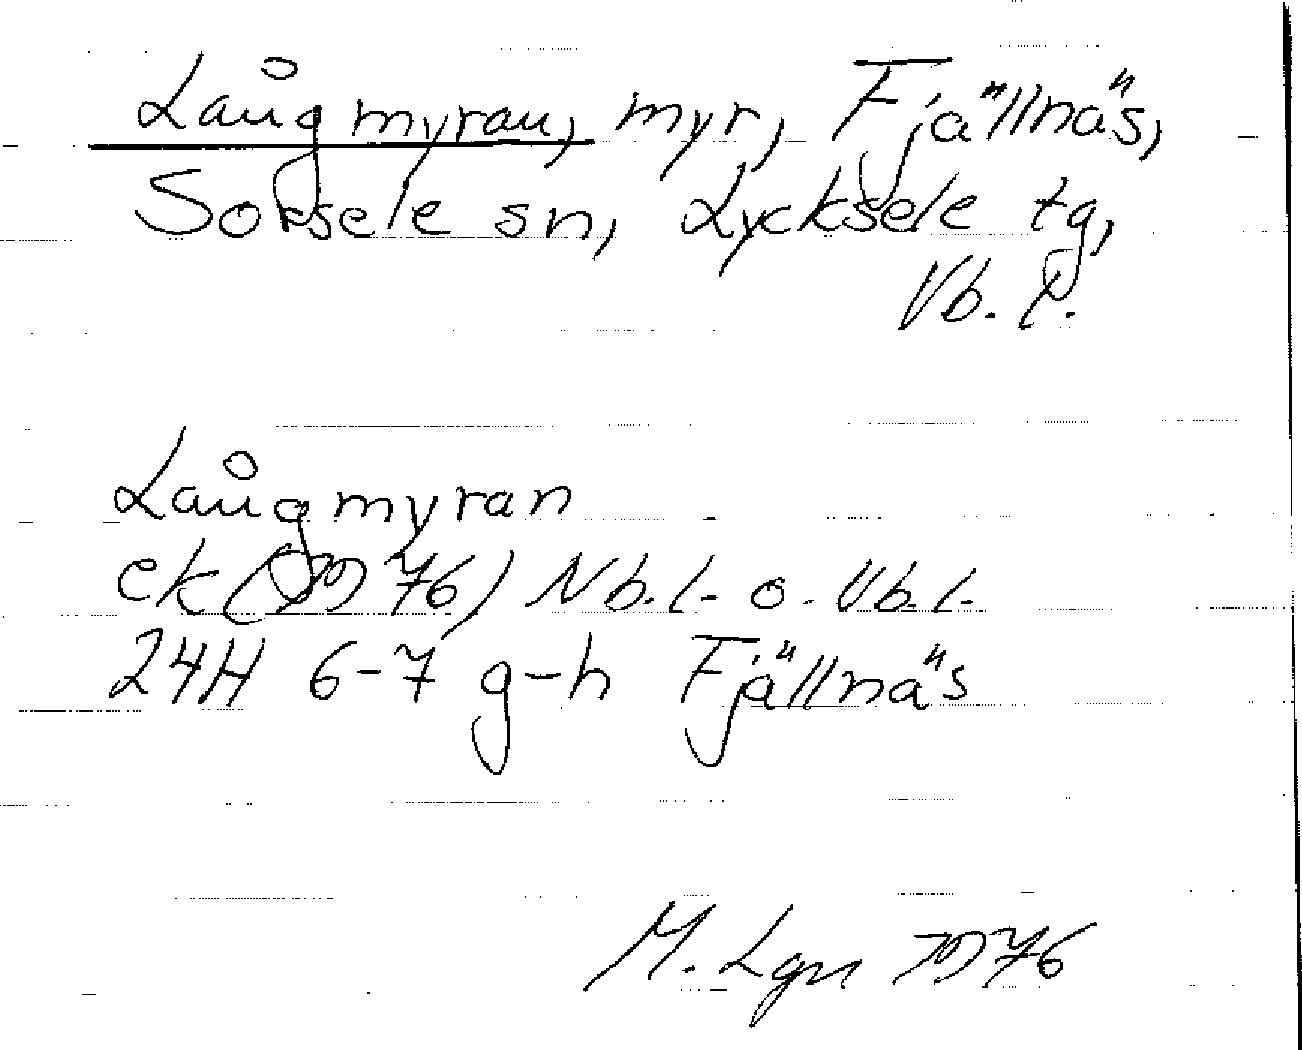 Långmyran, myr, Fjällnäs,
Sorsele sn, Lycksele tg,
Vb. l.
Långmyran
ek (1976) Nb. l. o. Vb. l.
24H 6-7 g-h Fjällnäs
M. Lgn 1976